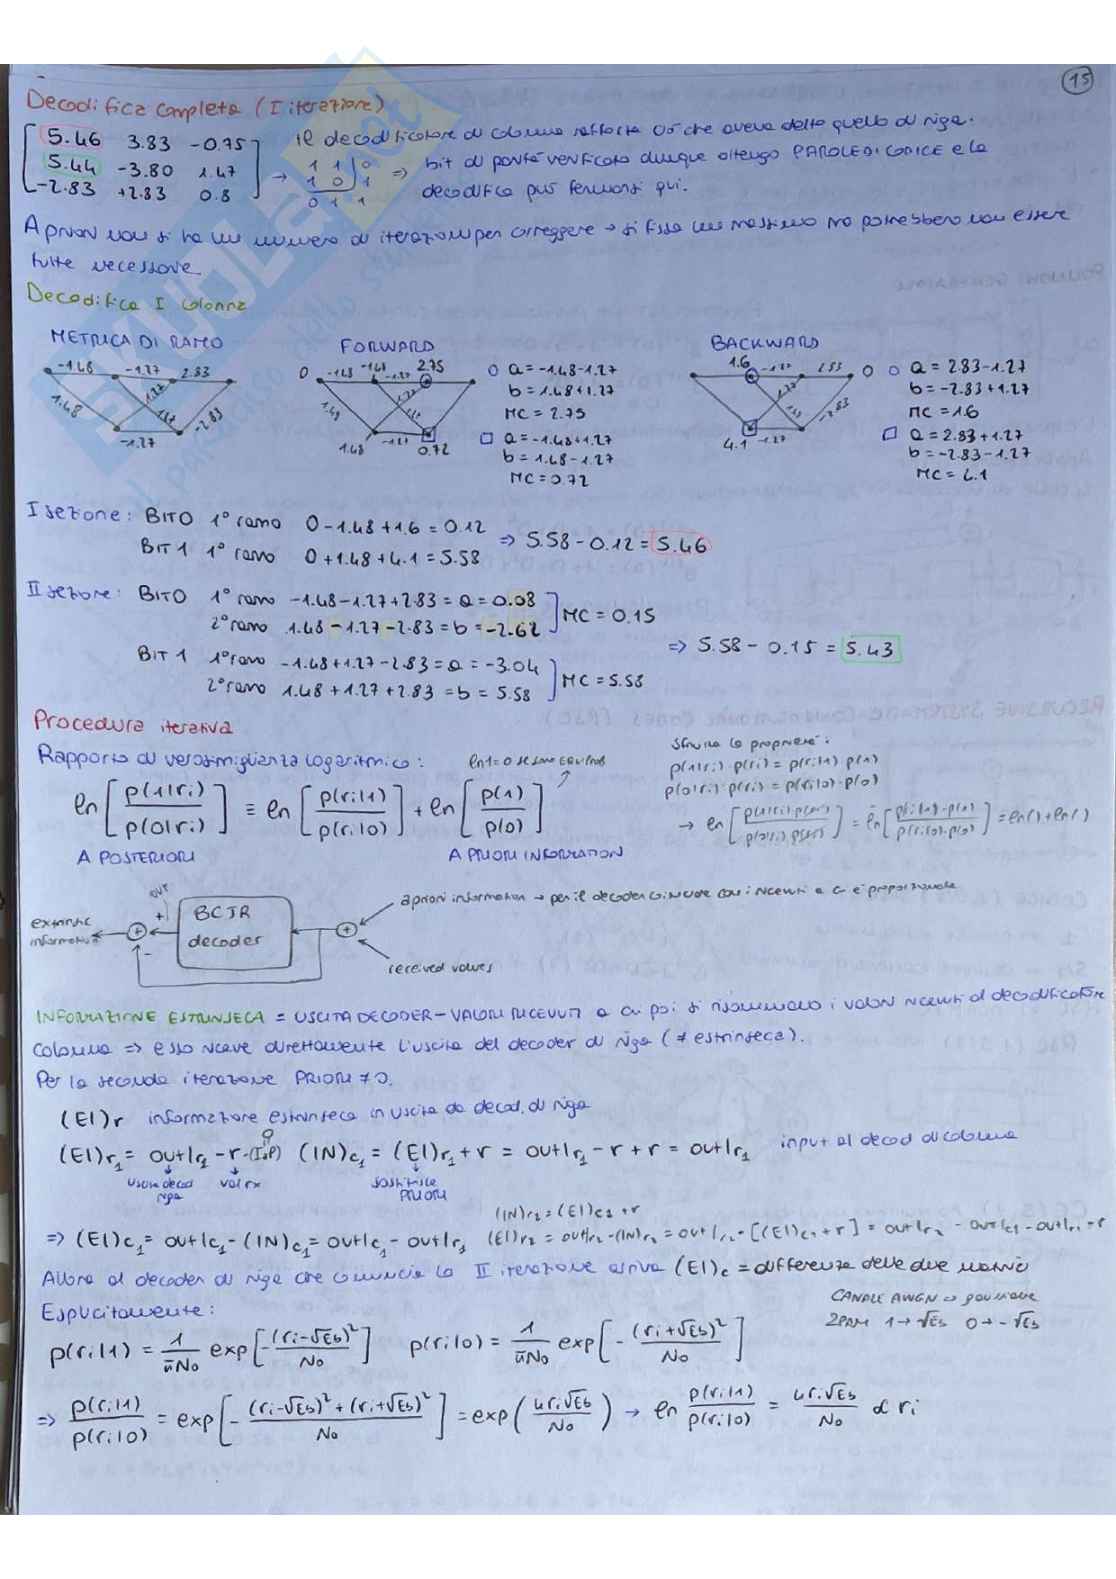 15
Decodifica completa (I iterazione)
[5.46 3.83 -0.75
5.44 -3.80 1.47
-2.83 +2.83 0.8] → 1 1 0
1 0 1
0 1 1
⇒ il decodificatore di colonna rafforza ciò che aveva detto quello di riga.
bit di parità verificato dunque ottengo PAROLE DI CODICE e la
decodifica può fermarsi qui.
A priori non si ha un numero di iterazioni per correggere → si fissa un massimo ma potrebbero non essere
tutte necessarie.
Decodifica I colonna
METRICA DI RAMO
-1.48 -1.27 2.83
1.48 1.27 1.27 -2.83
-1.27
FORWARD
0 -1.48 -1.48 -1.27 2.75
1.48 1.27 1.27
1.48 -1.27 0.72
○ a = -1.48-1.27
b = 1.48+1.27
MC = 2.75
□ a = -1.48+1.27
b = 1.48-1.27
MC = 0.72
BACKWARD
1.6 -1.27 2.83 0
1.27 1.27 -2.83
4.1 -1.27
○ a = 2.83-1.27
b = -2.83+1.27
MC = 1.6
□ a = 2.83+1.27
b = -2.83-1.27
MC = 4.1
I sezione: BIT 0 1° ramo 0-1.48+1.6 = 0.12
BIT 1 1° ramo 0+1.48+4.1 = 5.58
⇒ 5.58-0.12 = 5.46
II sezione: BIT 0 1° ramo -1.48-1.27+2.83 = a = 0.08
2° ramo 1.48-1.27-2.83 = b = -2.62
] MC = 0.15
BIT 1 1° ramo -1.48+1.27-2.83 = a = -3.04
2° ramo 1.48+1.27+2.83 = b = 5.58
] MC = 5.58
⇒ 5.58-0.15 = 5.43
Procedura iterativa
Rapporto di verosimiglianza logaritmico:
ln 1=0 se sono EQUIPROB
ln [p(1|ri)/p(0|ri)] ≡ ln [p(ri|1)/p(ri|0)] + ln [p(1)/p(0)]
A POSTERIORI
A PRIORI INFORMATION
Sfrutta la proprietà:
p(1|ri)·p(ri) = p(ri|1)·p(1)
p(0|ri)·p(ri) = p(ri|0)·p(0)
→ ln [p(1|ri)·p(ri)/p(0|ri)·p(ri)] = ln [p(ri|1)·p(1)/p(ri|0)·p(0)] = ln()+ln()
extrinsic
information
+ + - OUT
BCJR
decoder
+
a priori information → per il decoder coincide con i ricevuti a cui è proporzionale
received values
INFORMAZIONE ESTRINSECA = USCITA DECODER - VALORI RICEVUTI a cui poi si risommano i valori ricevuti al decodificatore
colonna => esso riceve direttamente l'uscita del decoder di riga (≠ estrinseca).
Per la seconda iterazione PRIORI ≠ 0.
(EI)r informazione estrinseca in uscita da decod. di riga
0
(EI)r₁ = out|r₁ - r - (IaP) (IN)c₁ = (EI)r₁ + r = out|r₁ - r + r = out|r₁ input al decod di colonna
uscita decod
riga
val rx
sostituisce
PRIORI
(IN)r₂ = (EI)c₁ + r
⇒ (EI)c₁ = out|c₁ - (IN)c₁ = out|c₁ - out|r₁ (EI)r₂ = out|r₂ - (IN)r₂ = out|r₂ - [(EI)c₁ + r] = out|r₂ - out|c₁ - out|r₁ - r
Allora al decoder di riga che comincia la II iterazione arriva (EI)c = differenza delle due
Esplicitamente:
CANALE AWGN → gaussiane
2PAM 1→√Es 0→-√Es
p(ri|1) = 1/πN₀ exp[-(ri-√Es)²/N₀] p(ri|0) = 1/πN₀ exp[-(ri+√Es)²/N₀]
⇒ p(ri|1)/p(ri|0) = exp[-(ri-√Es)²+(ri+√Es)²/N₀] = exp(4ri√Es/N₀) → ln p(ri|1)/p(ri|0) = 4ri√Es/N₀ ∝ ri